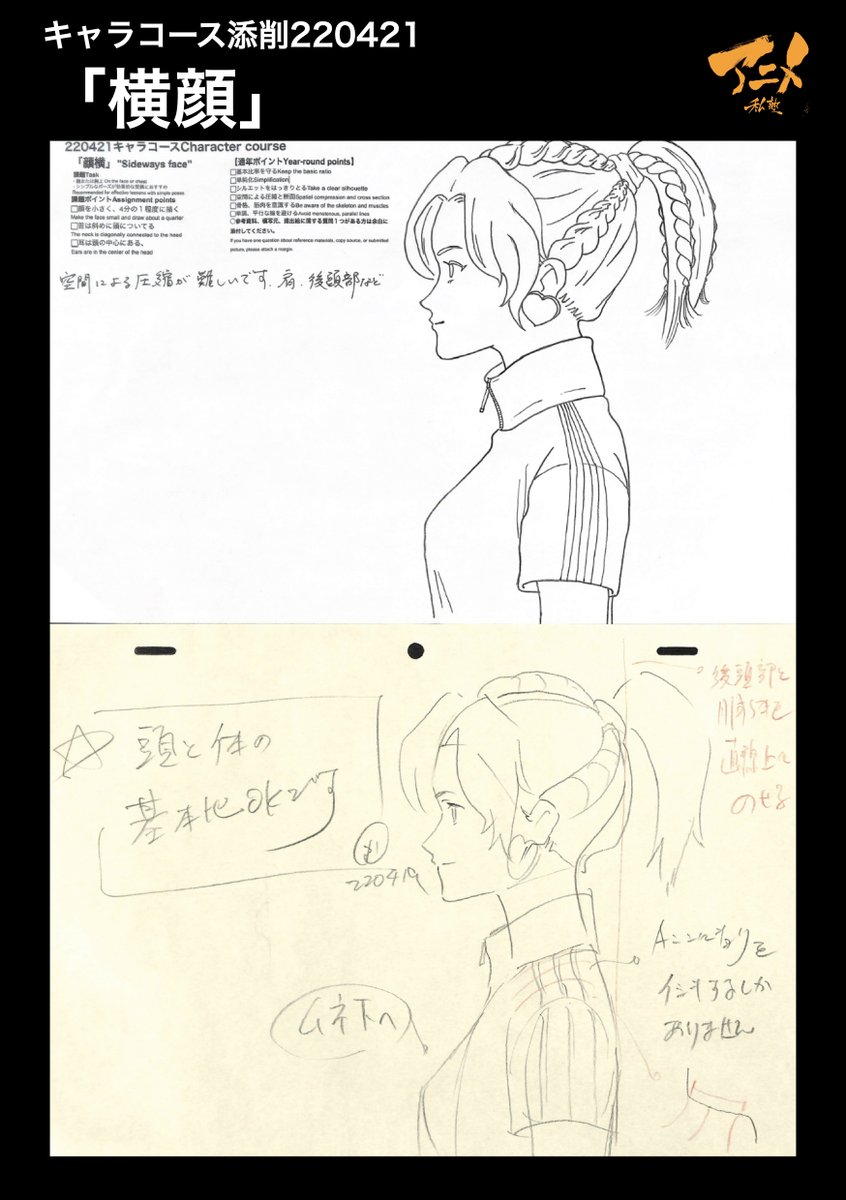 キャラコース添削220421
「横顔」
アニメ
私塾
220421キャラコースCharacter course
「顔横」"Sideways face"
課題Task
・顔または胸上 On the face or chest
・シンプルなポーズが効果的な受講におすすめ
Recommended for effective lessons with simple poses
課題ポイントAssignment points
□顔を小さく、4分の1程度に描く
Make the face small and draw about a quarter
□首は斜めに頭についてる
The neck is diagonally connected to the head
□耳は頭の中心にある、
Ears are in the center of the head
【通年ポイントYear-round points】
□基本比率を守るKeep the basic ratio
□単純化Simplification
□シルエットをはっきりとるTake a clear silhouette
□空間による圧縮と断面Spatial compression and cross section
□骨格、筋肉を意識するBe aware of the skeleton and muscles
□単調、平行な線を避けるAvoid monotonous, parallel lines
○参考資料、模写元、提出絵に関する質問1つがある方は余白に
添付してください。
If you have one question about reference materials, copy source, or submitted
picture, please attach a margin.
空間による圧縮が難しいです.肩.後頭部など
頭と体の
基本比OKです
220419
後頭部と
直線上に
のせる
ムネ下へ
イシキするしか
ありません